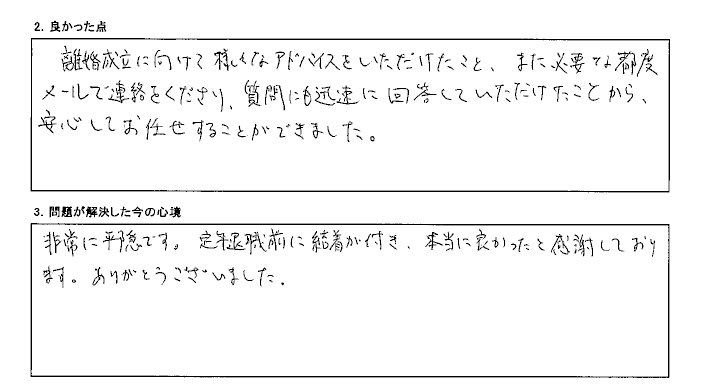 2. 良かった点
離婚成立に向けて様々なアドバイスをいただけたこと、また必要な都度
メールで連絡をくださり、質問にも迅速に回答していただけたことから、
安心してお任せすることができました。
3. 問題が解決した今の心境
非常に平穏です。定年退職前に結着が付き、本当に良かったと感謝しており
ます。ありがとうございました.